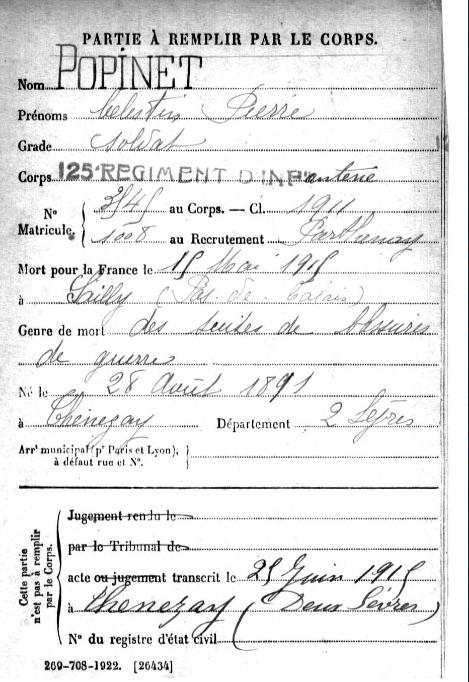 PARTIE À REMPLIR PAR LE CORPS.
Nom POPINET
Prénoms Célestin Pierre
Grade Soldat
Corps 125e REGIMENT D'INFanterie
N° Matricule. { 3545 au Corps. — Cl. 1911
1008 au Recrutement Parthenay
Mort pour la France le 15 Mai 1915
à Sailly (Pas de Calais)
Genre de mort des suites de blessures
de guerre
Né le 28 Août 1891
à Thénezay Département 2 Sèvres
Arrt municipal (pr Paris et Lyon),
à défaut rue et N°.
Cette partie n'est pas à remplir par le Corps.
Jugement rendu le
par le Tribunal de
acte ou jugement transcrit le 25 Juin 1915
à Thenezay (Deux Sèvres)
N° du registre d'état civil
269-708-1922. [26434]